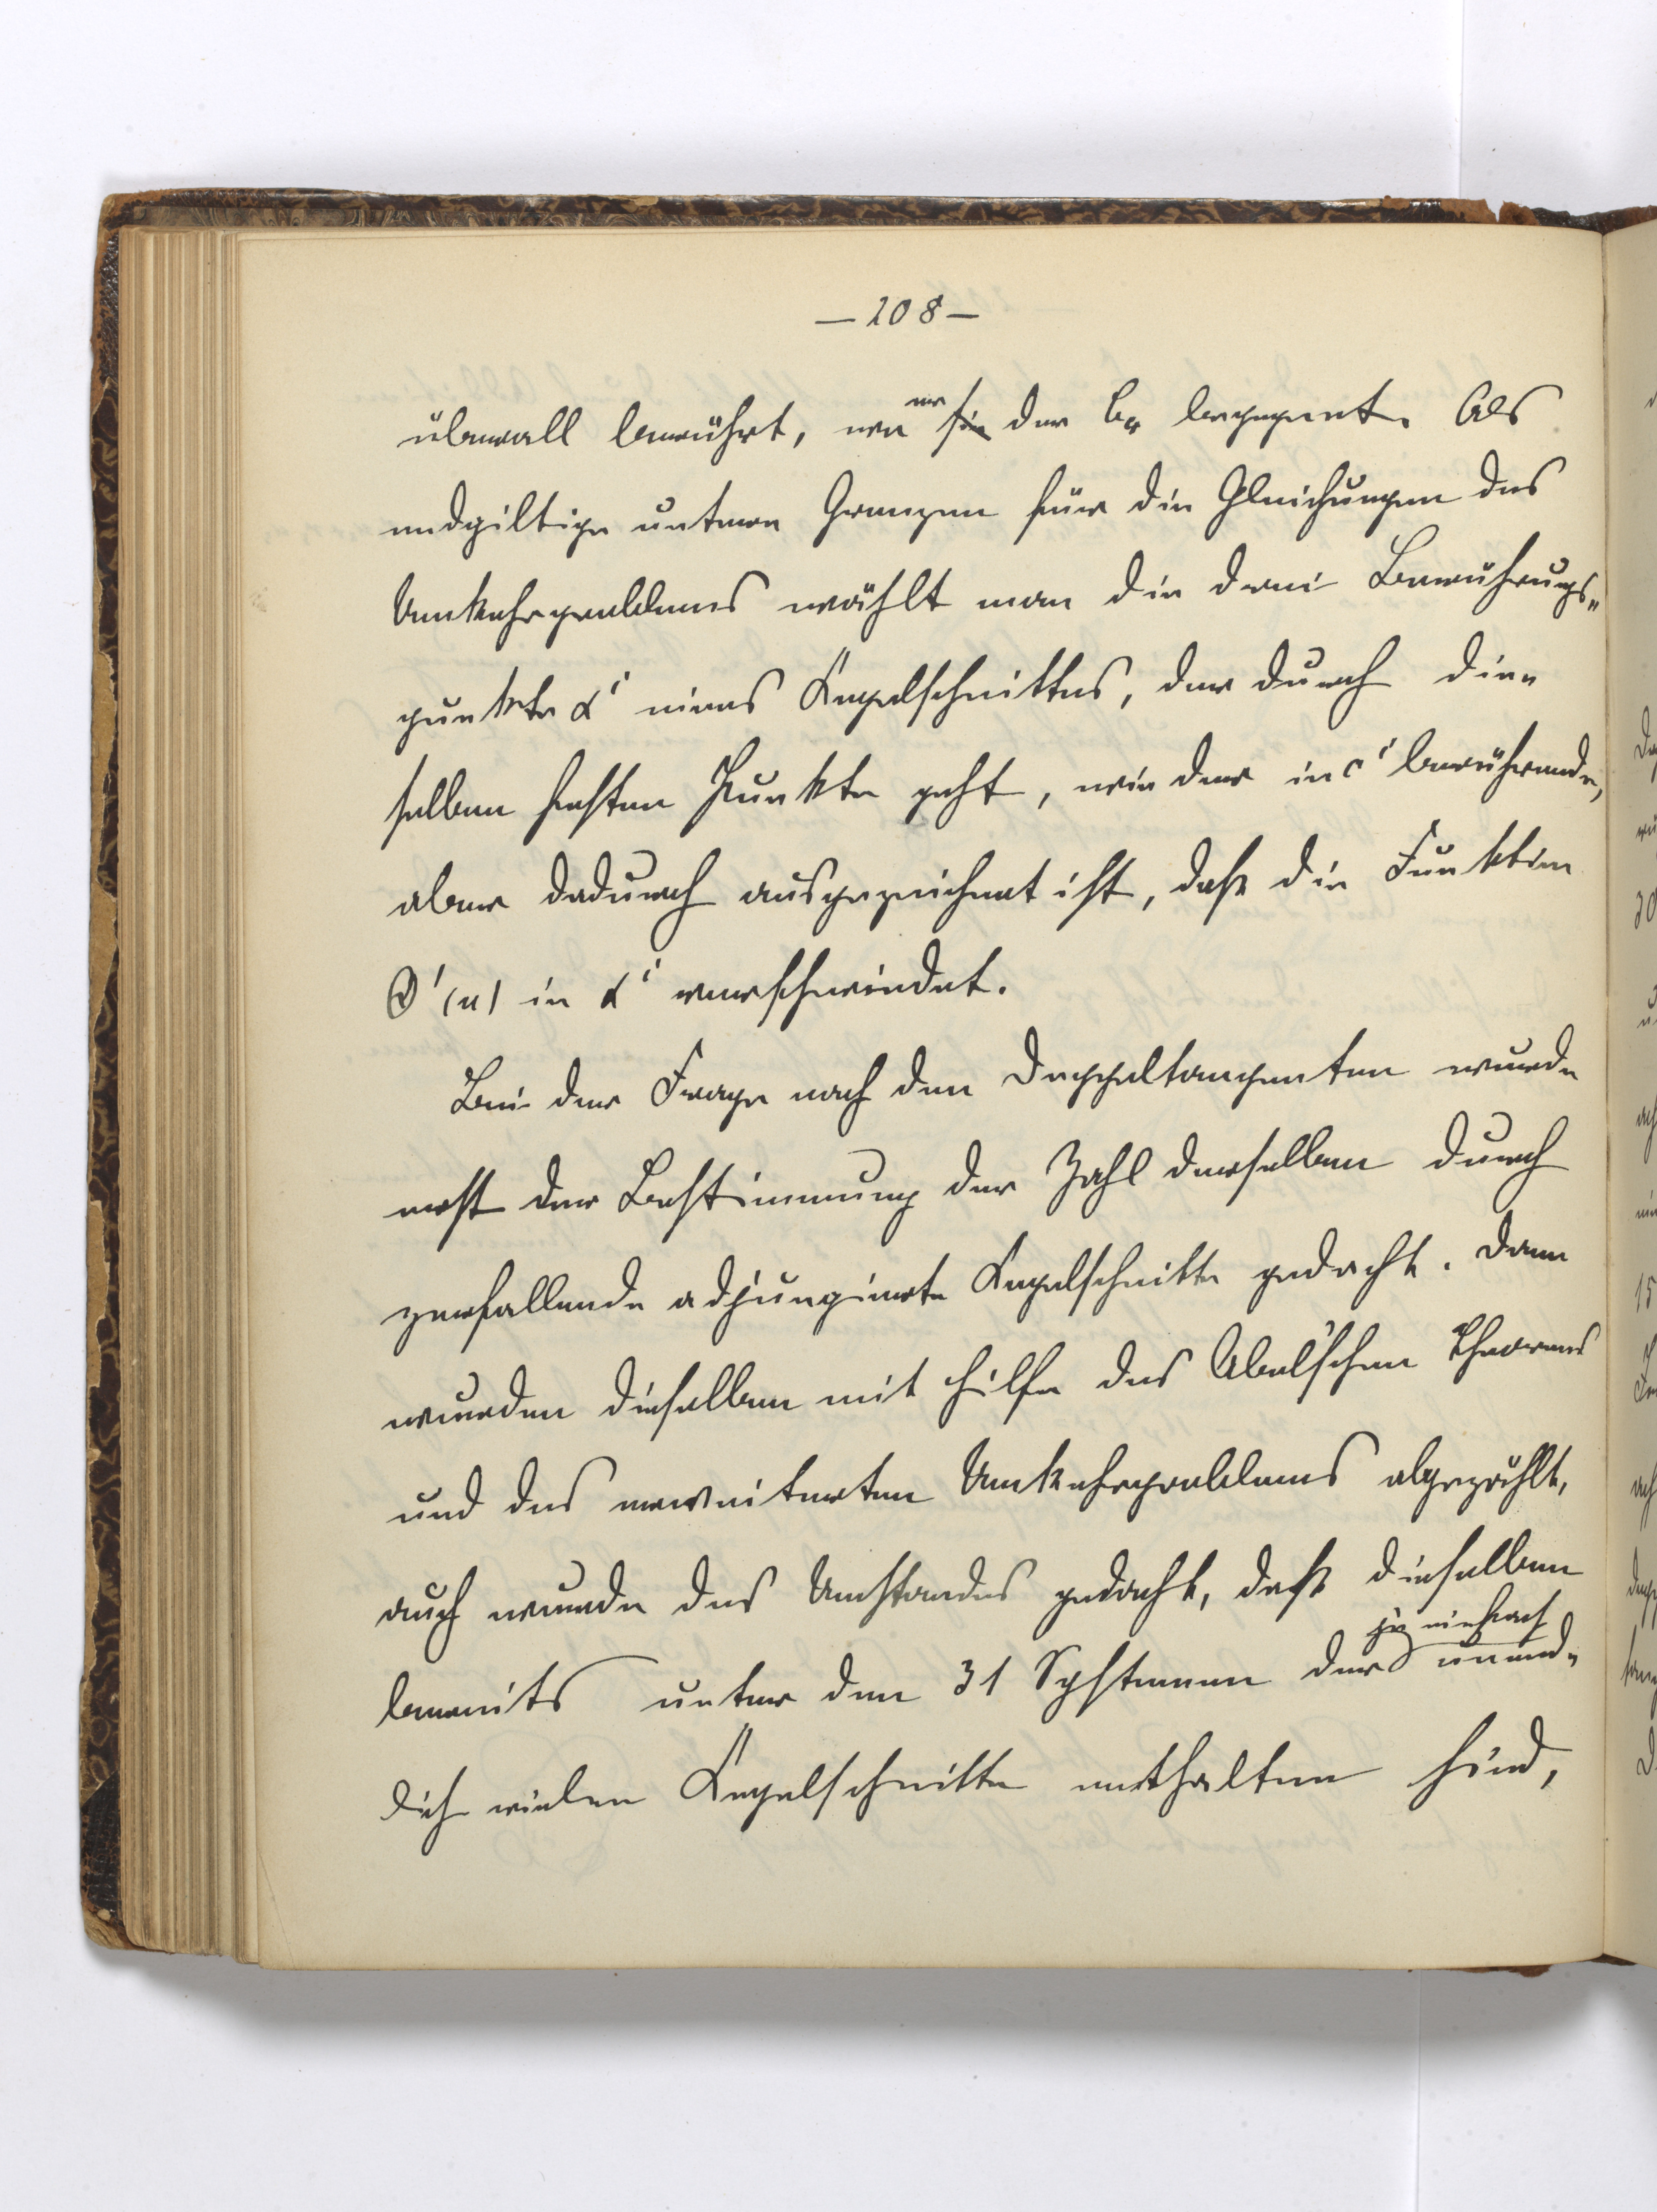 — 208 —
überall berührt, wo er der C₄ begegnet. Als
endgiltige untere Grenzen für die Gleichungen des
Umkehrproblems wählt man die drei Berührungs-
punkte αⁱ eines Kegelschnittes, der durch die-
selben festen Punkte geht, wie der in cⁱ berührende,
aber dadurch ausgezeichnet ist, daß die Funktion
Θ'(u) in αⁱ verschwindet.
Bei der Frage nach den Doppeltangenten wurde
erst der Bestimmung der Zahl derselben durch
zerfallende adjungierte Kegelschnitte gedacht. Dann
wurden dieselben mit Hilfe des Abel'schen Theorems
und des erweiterten Umkehrproblems abgezählt,
auch wurde des Umstandes gedacht, daß dieselben
bereits unter den 31 Systemen der je einfach unend-
lich vielen Kegelschnitte enthalten sind,